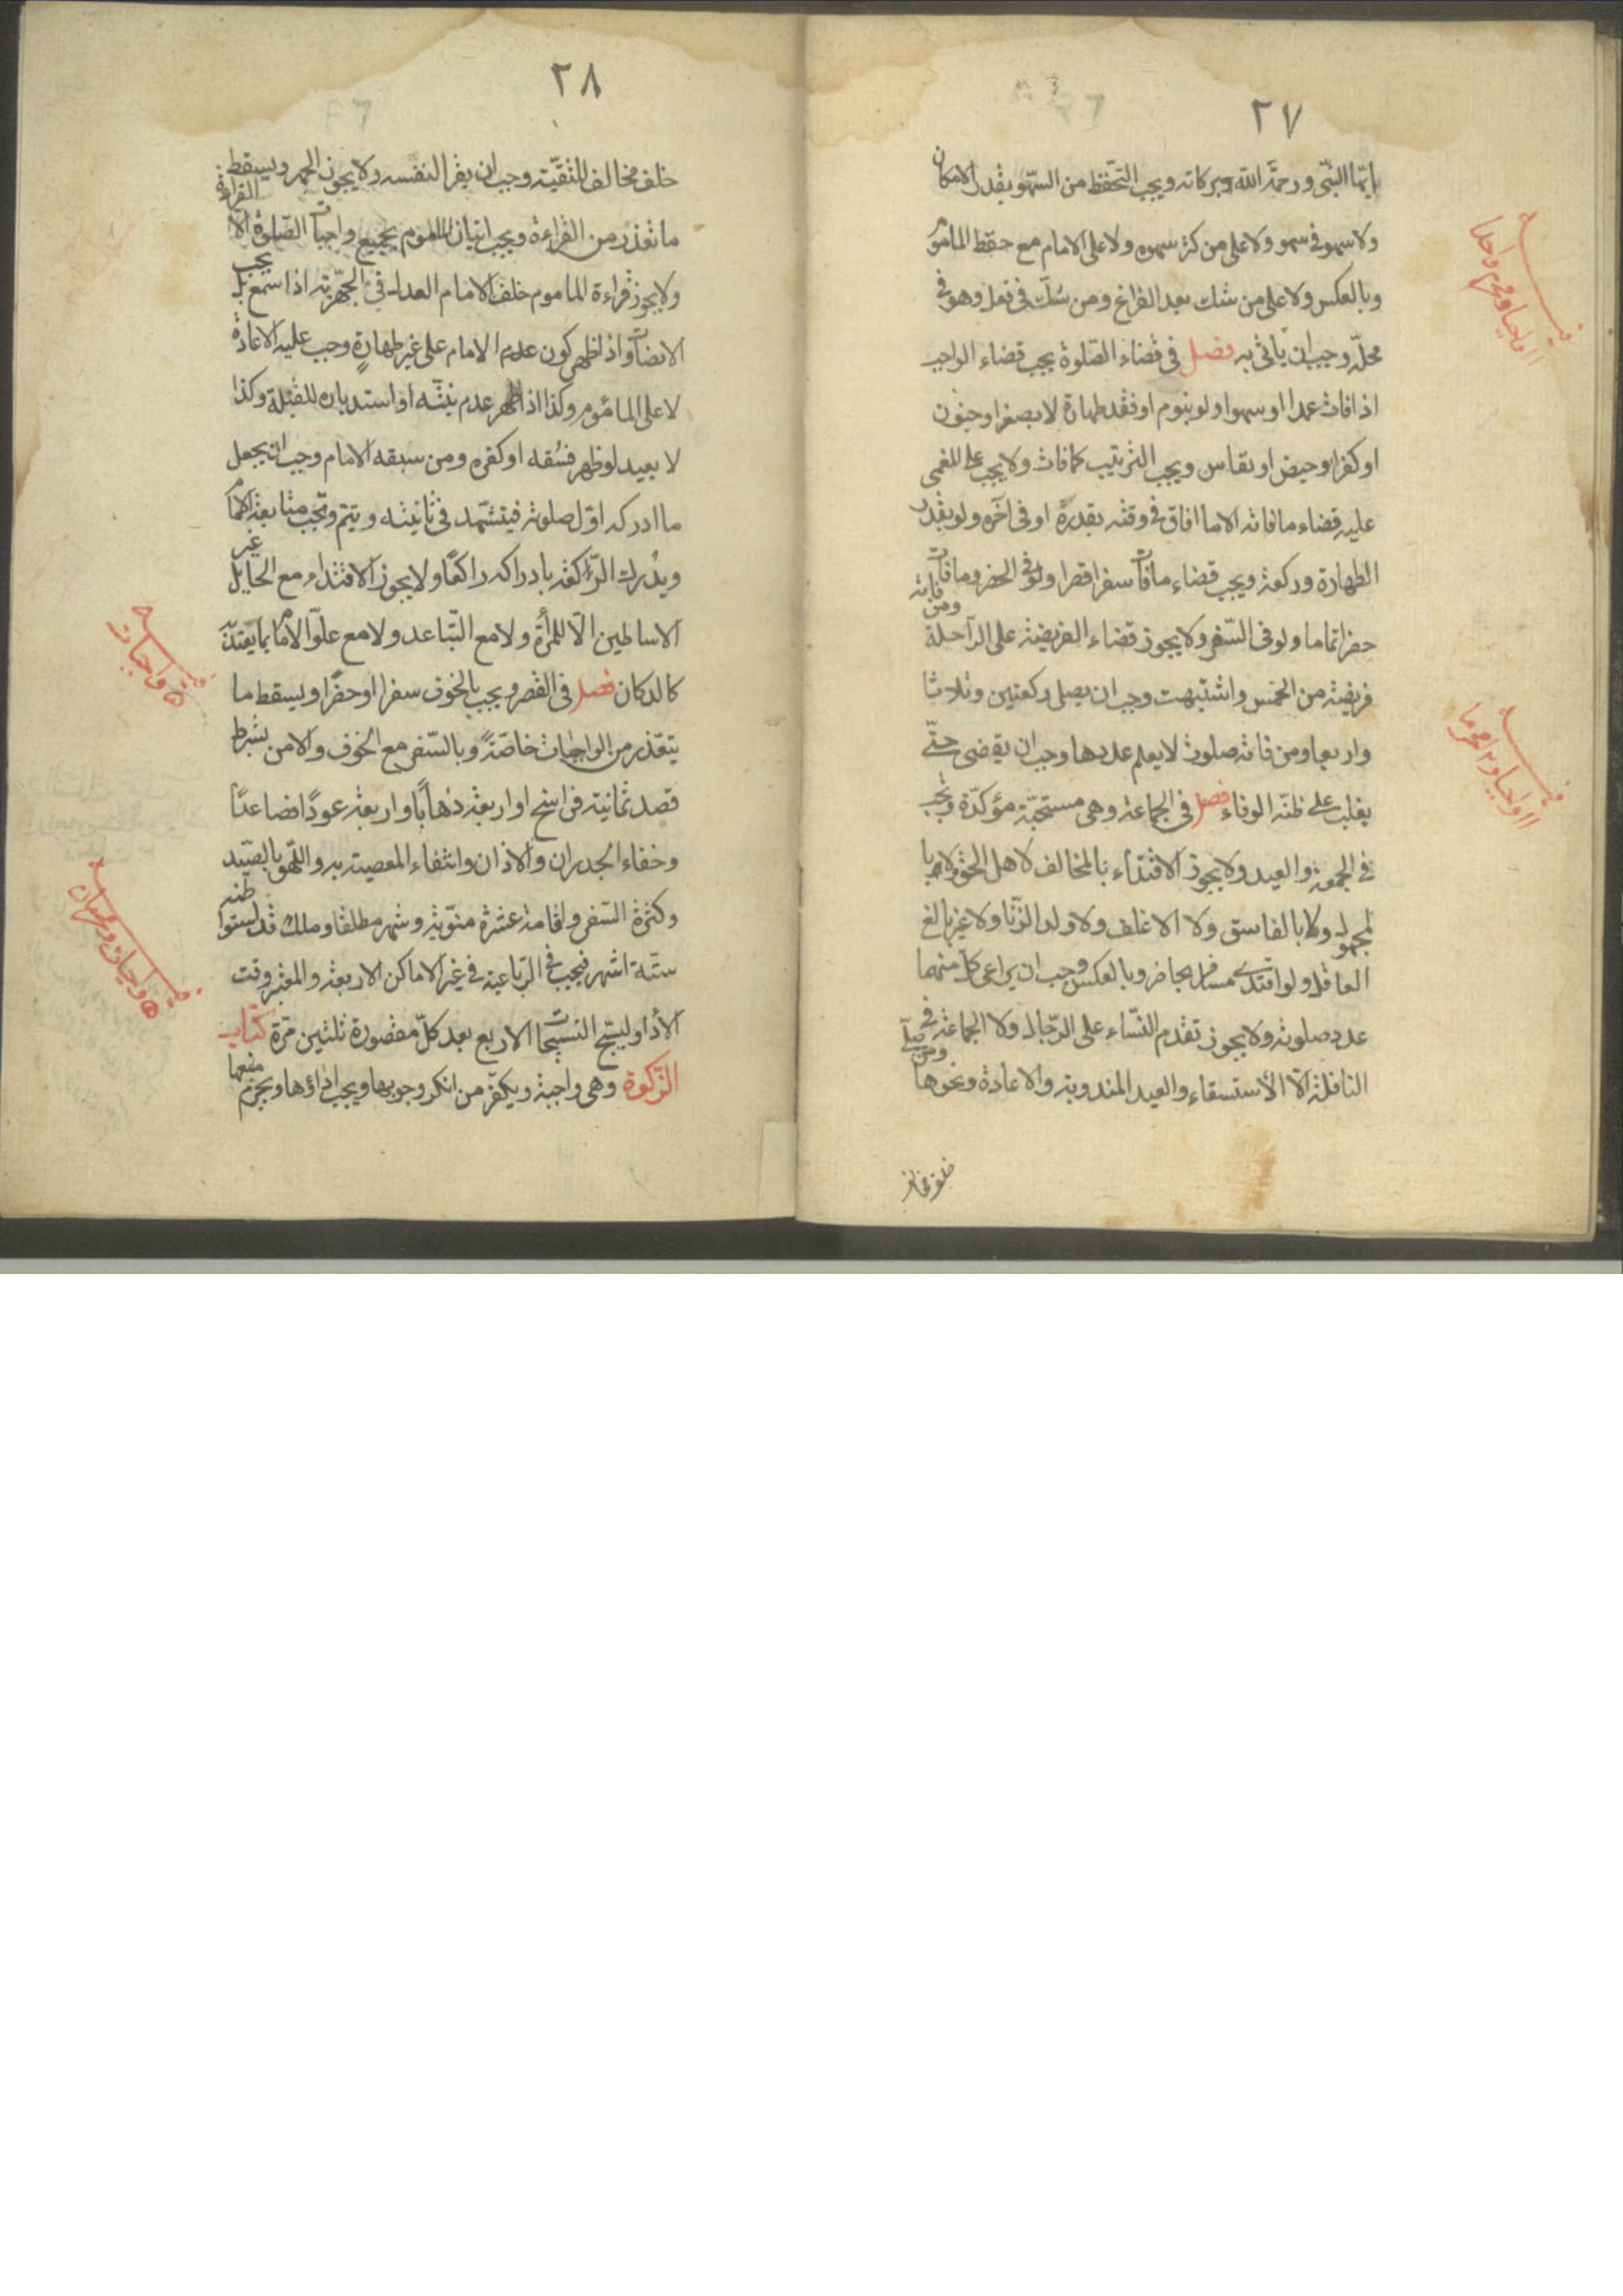 ٢٧
ايها النبى ورحمة الله وبركاته ويجب التحفظ من السهو بقدر الامكان
ولا سهو فى سهو ولا على من كثر سهوه ولا على الامام مع حفظ المأموم
وبالعكس ولا على من شك بعد الفراغ ومن شك فى فعل وهو فى
محله وجب ان يأتى به فصل فى قضاء الصلوة يجب قضاء الواجب
اذا فات عمدا او سهوا ولو بنوم او فقد طهارة لا بصغر او جنون
او كفر او حيض او نفاس ويجب الترتيب كما فات ولا يجب على المغمى
عليه قضاء ما فاته الا ما افاق فى وقته بقدره او فى آخره ولو بقدر
الطهارة وركعة ويجب قضاء ما فات سفرا قصرا ولو فى الحضر وما فات
حضرا تماما ولو فى السفر ولا يجوز قضاء الفريضة على الراحلة ومن فاته
فريضة من الخمس واشتبهت وجب ان يصلى ركعتين وثلاثا
واربعا ومن فاته صلوة لا يعلم عددها وجب ان يقضى حتى
يغلب على ظنه الوفاء فصل فى الجماعة وهى مستحبة مؤكدة وتجب
فى الجمعة والعيد ولا يجوز الاقتداء بالمخالف لاهل الحق ولا با
لمجهول ولا بالفاسق ولا الاغلف ولا ولد الزنا ولا غير بالغ
العاقل ولو اقتدى مسافر بحاضر وبالعكس وجب ان يراعى كل منهما
عدد صلوته ولا يجوز تقدم النساء على الرجال ولا الجماعة فى
النافلة الا الأستسقاء والعيد المندوبة والاعادة ونحوها ومن صلى
خلف مخالف
١١ واجبا ومحرم واحدا
١١ واجبا و محرما
٢٨
خلف مخالف للتقية وجب ان يقرا لنفسه ولا يجوز الجهر ويسقط
ما تعذر من القراءة ويجب اتيان المأموم بجميع واجبات الصلوة الا القراءة
ولا يجوز قراءة الماموم خلف الامام العدل فى الجهرية اذا سمع بل يجب
الانصات واذا ظهر كون عدم الامام على غير طهارة وجب عليه الاعادة
لا على المأموم وكذا اذا ظهر عدم نيته او استدباره للقبلة وكذا
لا يعيد لو ظهر فسقه او كفره ومن سبقه الامام وجب ان يجعل
ما ادركه اول صلوته فيتشهد فى ثانيته ويتم وتجب متابعة الامام
ويدرك الركعة بادراكه راكعا ولا يجوز الاقتداء مع الحايل غير
الاساطين الا للمرأة ولا مع التباعد ولا مع علو الامام بما يعتد
كالدكان فصل فى القصر ويجب بالخوف سفرا او حضرا ويسقط ما
يتعذر من الواجبات خاصة وبالسفر مع الخوف والامن بشرط
قصد ثمانية فراسخ او اربعة ذهابا واربعة عودا فصاعدا
وخفاء الجدران والاذان وانتفاء المعصية به واللهو بالصيد
وكثرة السفر واقامة عشرة منوية وشهر مطلقا وملك قد استوطنه
ستة اشهر فيجب فى الرباعية فى غير الاماكن الاربعة والمعتبر وقت
الأدا وليسبح التسبيحات الاربع بعد كل مقصورة ثلثين مرة كتاب
الزكوة وهى واجبة ويكفر من انكر وجوبها ويجب اداؤها ويحرم منعها
٥ واجبات
٥ واجبات ومحرمان